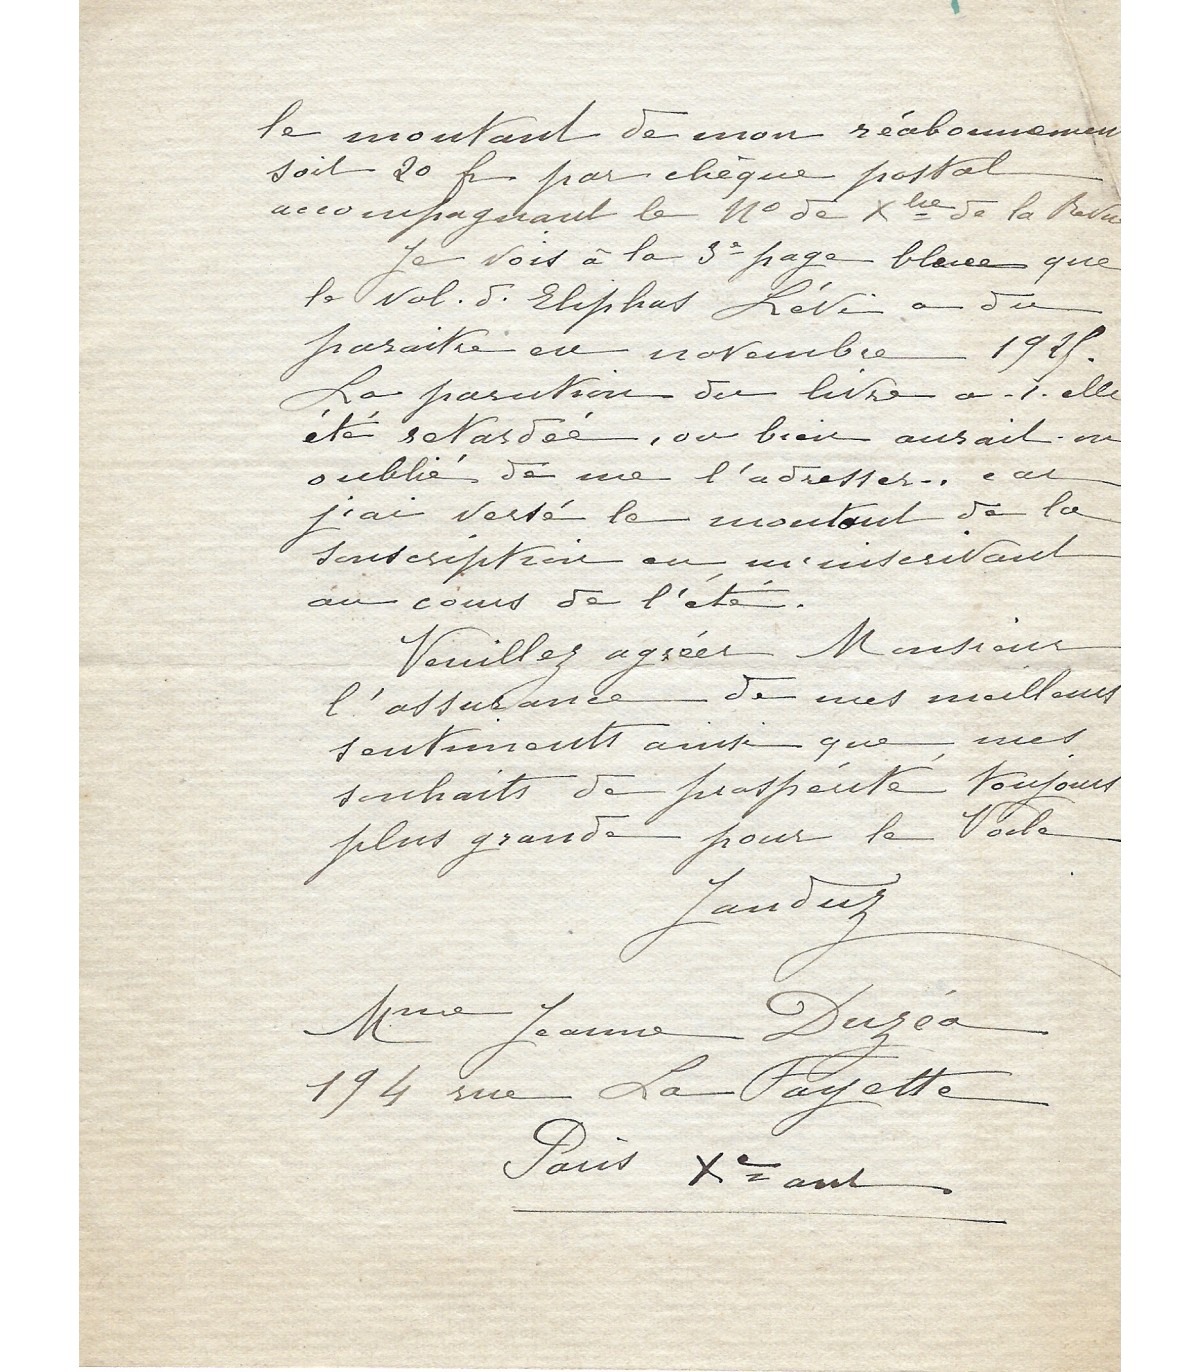 le montant de mon réabonnemen
soit 20 fr par chèque postal
accompagnant le No de Xbre de la Revue
Je vois à la 3e page bleue que
le vol. d. Eliphas Lévi a du
paraitre en novembre 1925.
La parution du livre a-t-elle
été retardée, ou bien aurait-on
oublié de me l'adresser.. car
j'ai versé le montant de la
souscription en m'inscrivant
au cours de l'été.
Veuillez agréer Monsieur
l'assurance de mes meilleurs
sentiments ainsi que mes
souhaits de prospérité toujours
plus grande pour le Voile
Janduz
Mme Jeanne Duzéa
194 rue La Fayette
Paris Xe arrt